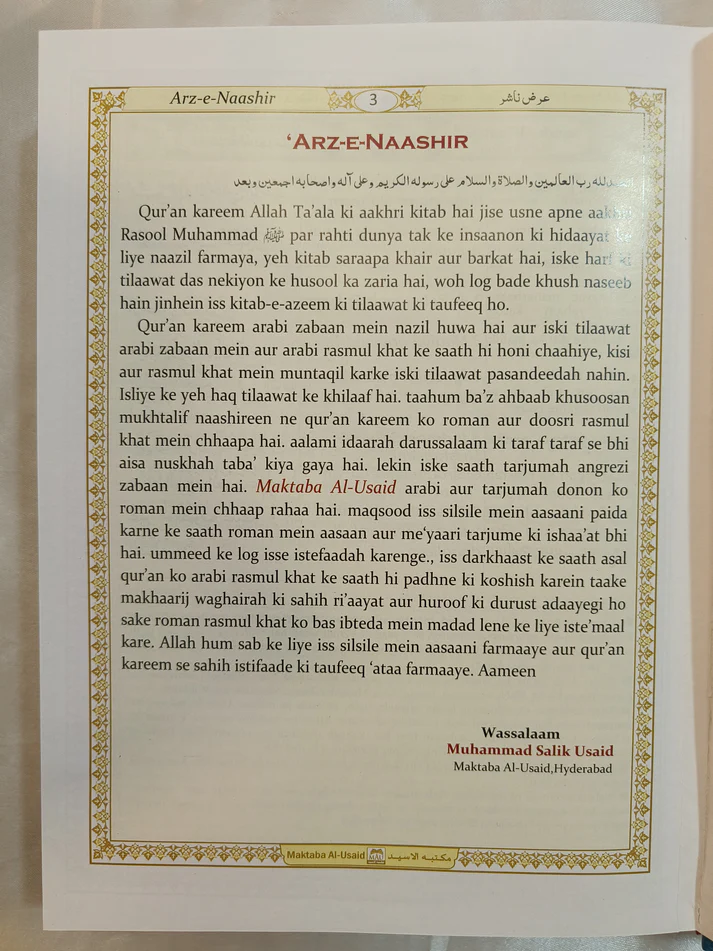 Arz-e-Naashir 3 عرض ناشر
‘ARZ-E-NAASHIR
رب العالمين والصلاة والسلام على رسوله الكريم وعلى آله واصحابه اجمعين وبعد
Qur’an kareem Allah Ta’ala ki aakhri kitab hai jise usne apne
Rasool Muhammad ﷺ par rahti dunya tak ke insaanon ki hidaayat ke
liye naazil farmaya, yeh kitab saraapa khair aur barkat hai, iske harf ki
tilaawat das nekiyon ke husool ka zaria hai, woh log bade khush naseeb
hain jinhein iss kitab-e-azeem ki tilaawat ki taufeeq ho.
Qur’an kareem arabi zabaan mein nazil huwa hai aur iski tilaawat
arabi zabaan mein aur arabi rasmul khat ke saath hi honi chaahiye, kisi
aur rasmul khat mein muntaqil karke iski tilaawat pasandeedah nahin.
Isliye ke yeh haq tilaawat ke khilaaf hai. taahum ba’z ahbaab khusoosan
mukhtalif naashireen ne qur’an kareem ko roman aur doosri rasmul
khat mein chhaapa hai. aalami idaarah darussalaam ki taraf taraf se bhi
aisa nuskhah taba’ kiya gaya hai. lekin iske saath tarjumah angrezi
zabaan mein hai. Maktaba Al-Usaid arabi aur tarjumah donon ko
roman mein chhaap rahaa hai. maqsood iss silsile mein aasaani paida
karne ke saath roman mein aasaan aur me‘yaari tarjume ki ishaa’at bhi
hai. ummeed ke log isse istefaadah karenge., iss darkhaast ke saath asal
qur’an ko arabi rasmul khat ke saath hi padhne ki koshish karein taake
makhaarij waghairah ki sahih ri’aayat aur huroof ki durust adaayegi ho
sake roman rasmul khat ko bas ibteda mein madad lene ke liye iste’maal
kare. Allah hum sab ke liye iss silsile mein aasaani farmaaye aur qur’an
kareem se sahih istifaade ki taufeeq ‘ataa farmaaye. Aameen
Wassalaam
Muhammad Salik Usaid
Maktaba Al-Usaid,Hyderabad
Maktaba Al-Usaid مكتبه الاسيد